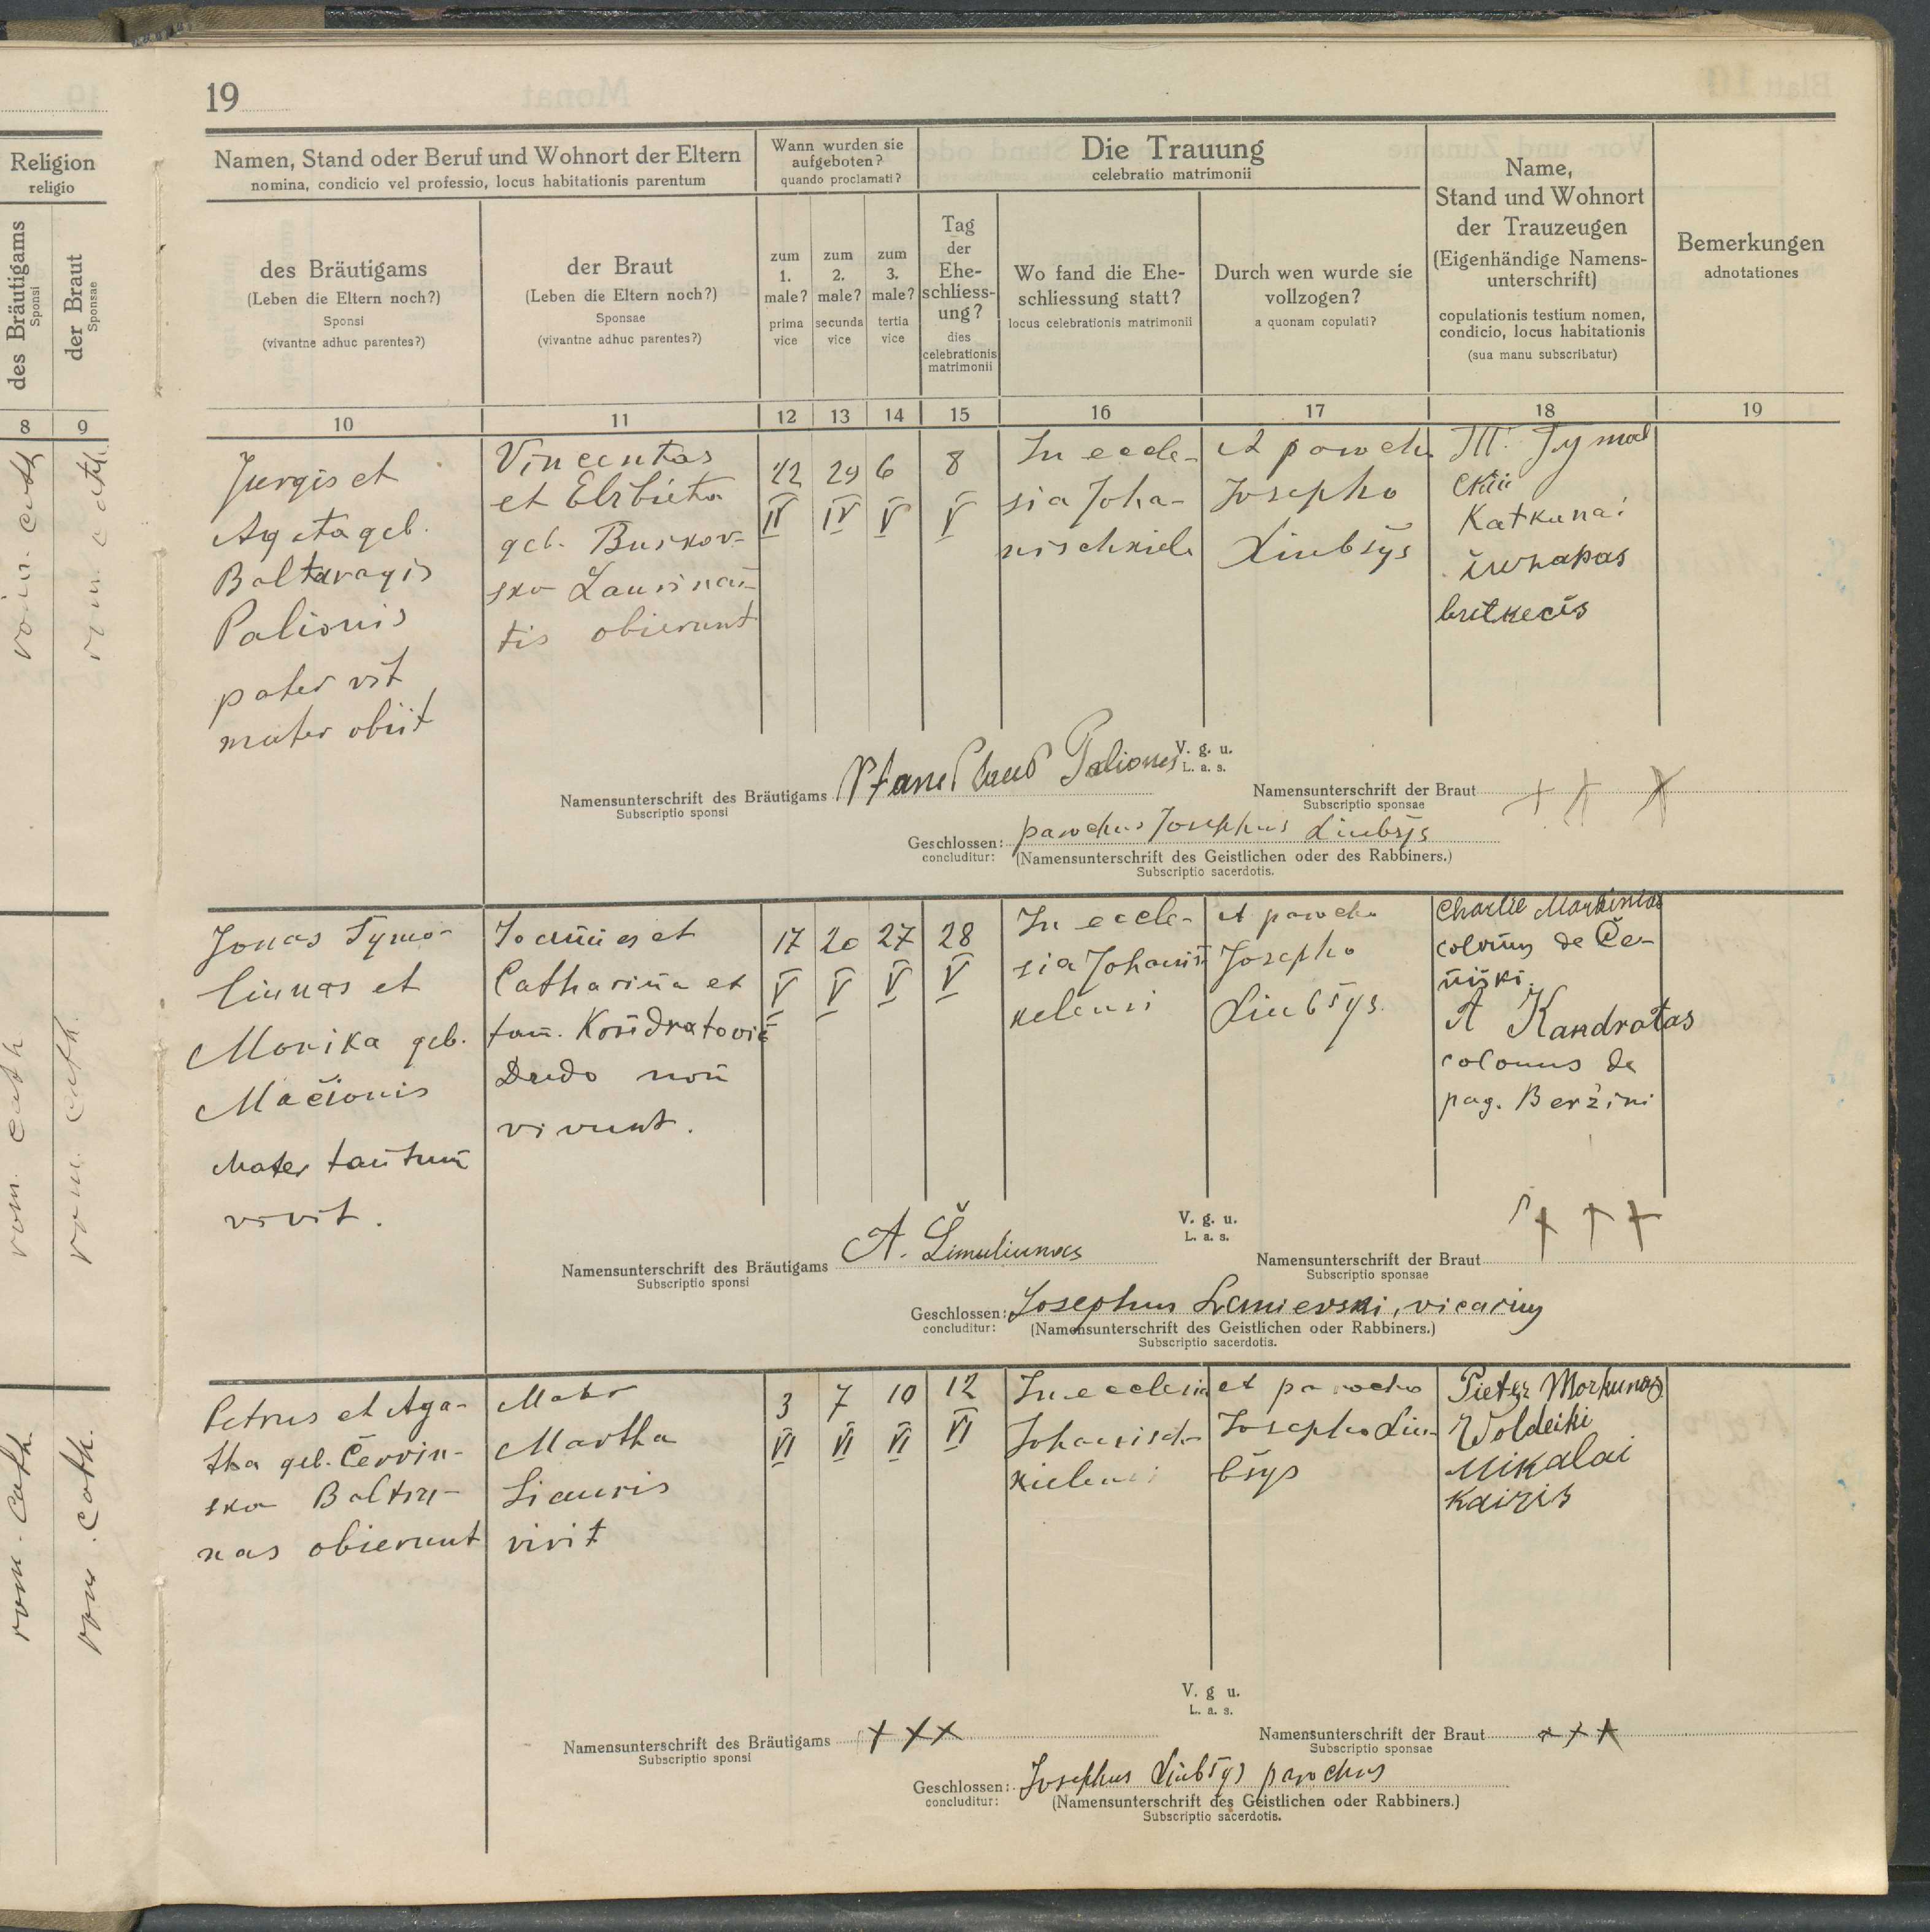 19
Religion
religio
des Bräutigams
Sponsi
der Braut
Sponsae
8
9
rom. cath.
rom. cath.
rom. cath.
rom. cath.
rom. cath.
rom. cath.
Namen, Stand oder Beruf und Wohnort der Eltern
nomina, condicio vel professio, locus habitationis parentum
Wann wurden sie
aufgeboten?
quando proclamati?
Die Trauung
celebratio matrimonii
Name,
Stand und Wohnort
der Trauzeugen
(Eigenhändige Namens-
unterschrift)
copulationis testium nomen,
condicio, locus habitationis
(sua manu subscribatur)
Bemerkungen
adnotationes
des Bräutigams
(Leben die Eltern noch?)
Sponsi
(vivantne adhuc parentes?)
der Braut
(Leben die Eltern noch?)
Sponsae
(vivantne adhuc parentes?)
zum
1.
male?
prima
vice
zum
2.
male?
secunda
vice
zum
3.
male?
tertia
vice
Tag
der
Ehe-
schliess-
ung?
dies
celebrationis
matrimonii
Wo fand die Ehe-
schliessung statt?
locus celebrationis matrimonii
Durch wen wurde sie
vollzogen?
a quonam copulati?
10
11
12
13
14
15
16
17
18
19
Jurgis et
Ageta geb.
Baltaragis
Palionis
pater vit
mater obiit
Vincentas
et Elzbieta
geb. Burkov-
sko Laurinai-
tis obierunt
22
IV
29
IV
6
V
8
V
In eccle-
sia Joha-
nischkiele
A parocho
Josepho
Liubšys
Katkunai
V. g. u.
L. a. s.
Namensunterschrift des Bräutigams Stanislaus Paliones
Subscriptio sponsi
Namensunterschrift der Braut + + +
Subscriptio sponsae
Geschlossen: parochus Josephus Liubšys
concluditur: (Namensunterschrift des Geistlichen oder des Rabbiners.)
Subscriptio sacerdotis.
Jonas Symo-
liunas et
Monika geb.
Mačionis
Mater tantum
vivit.
Joannes et
Catharina et
Kondratovič
Dudo non
vivunt.
17
V
20
V
27
V
28
V
In eccle-
sia Johaniš
kelensi
A parocho
Josepho
Liubšys.
Charlie Markinias
colonus de Če-
niški.
A Kandrotas
colonus de
pag. Beržini
V. g. u.
L. a. s.
Namensunterschrift des Bräutigams A. Šimuliunas
Subscriptio sponsi
Namensunterschrift der Braut + + +
Subscriptio sponsae
Geschlossen: Josephus vicarius
concluditur: (Namensunterschrift des Geistlichen oder Rabbiners.)
Subscriptio sacerdotis.
Petrus et Aga-
tha geb. Červin-
sko Baltru-
nas obierunt
Mater
Martha
Liauris
vivit
3
VI
7
VI
10
VI
12
VI
In ecclesia
Johanisch-
kielensi
A parocho
Josepho Liu-
bšys
Pietr Morkunas
Woldeiki
Mikalai
Kairis
V. g u.
L. a. s.
Namensunterschrift des Bräutigams + + +
Subscriptio sponsi
Namensunterschrift der Braut + + +
Subscriptio sponsae
Geschlossen: Josephus Liubšys parochus
concluditur: (Namensunterschrift des Geistlichen oder Rabbiners.)
Subscriptio sacerdotis.